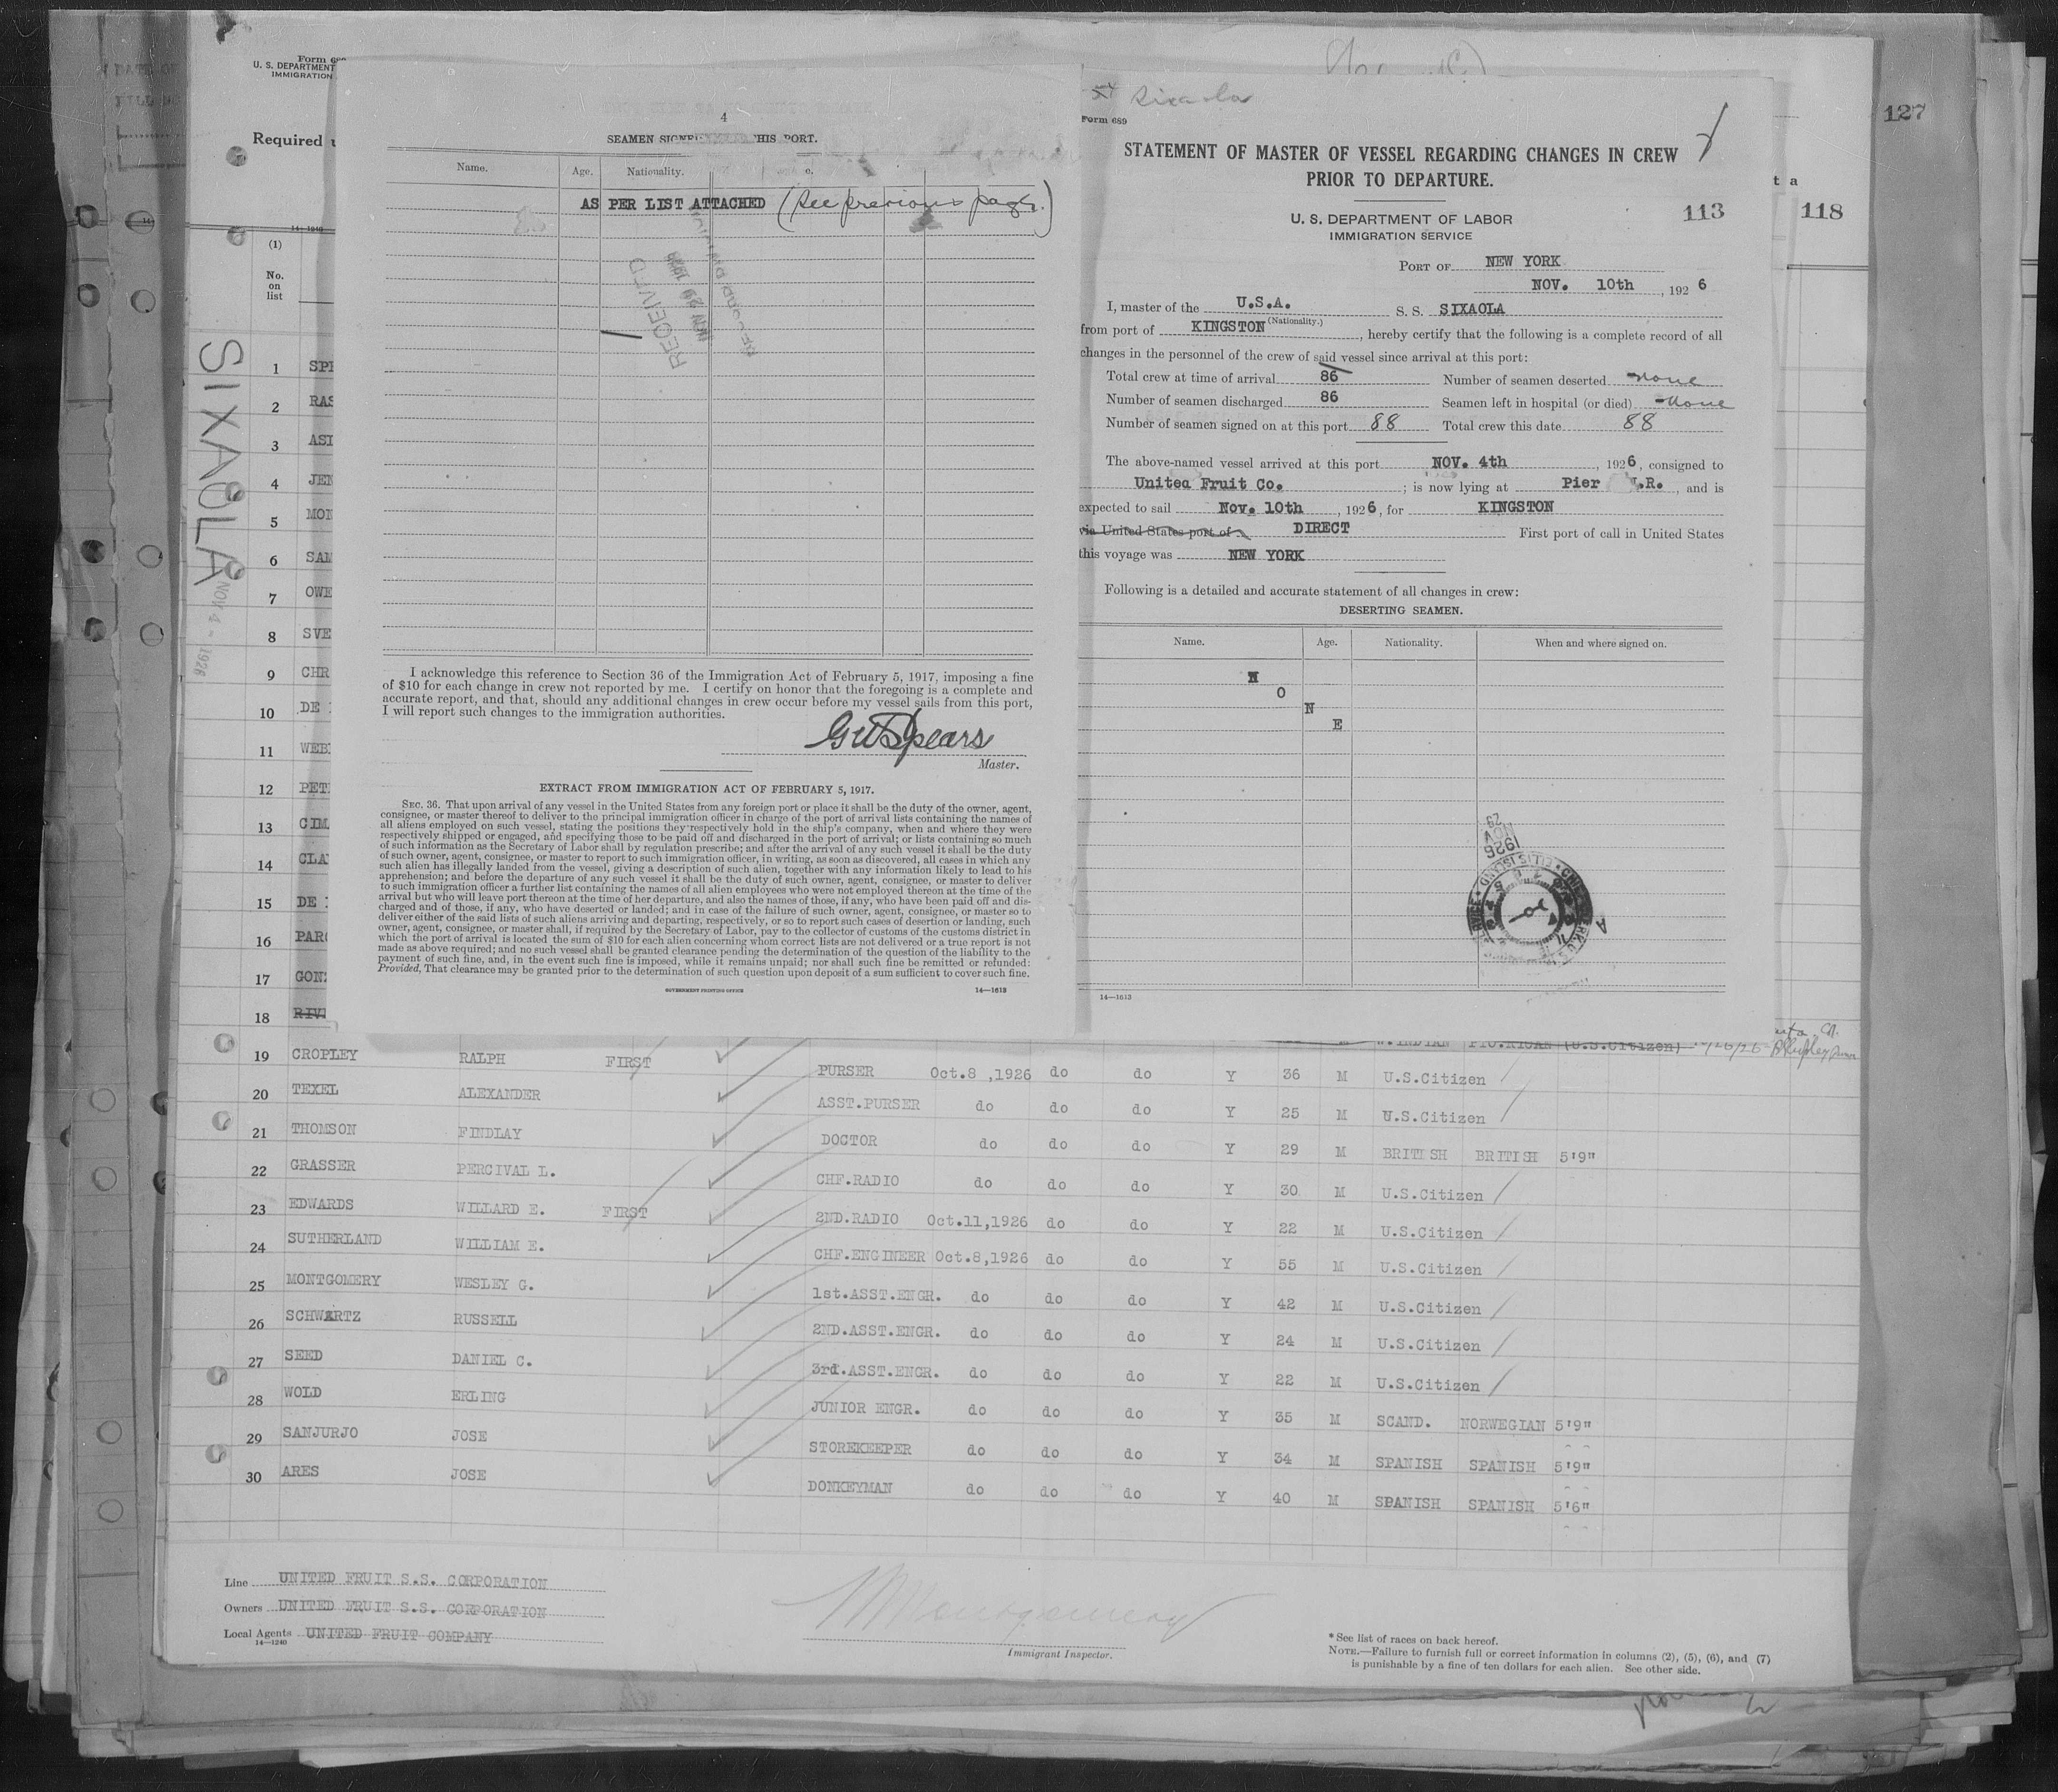 127
Form 689
U. S. DEPARTMENT
IMMIGRATION
Required
118
14—1240
(1)
No.
on
list
SIXAOLA
NOV 4 - 1926
1 SPE
2 RAS
3 ASI
4 JEN
5 MON
6 SAM
7 OWE
8 SVE
9 CHR
10 DE
11 WEB
12 PET
13 CIM
14 CLA
15 DE
16 PAR
17 GON
18 RIV
4
SEAMEN SIGNED THIS PORT.
Name. Age. Nationality.
AS PER LIST ATTACHED (See previous page.)
RECEIVED
NOV 29 1926
I acknowledge this reference to Section 36 of the Immigration Act of February 5, 1917, imposing a fine
of $10 for each change in crew not reported by me. I certify on honor that the foregoing is a complete and
accurate report, and that, should any additional changes in crew occur before my vessel sails from this port,
I will report such changes to the immigration authorities.
GWSpears
Master.
EXTRACT FROM IMMIGRATION ACT OF FEBRUARY 5, 1917.
SEC. 36. That upon arrival of any vessel in the United States from any foreign port or place it shall be the duty of the owner, agent,
consignee, or master thereof to deliver to the principal immigration officer in charge of the port of arrival lists containing the names of
all aliens employed on such vessel, stating the positions they respectively hold in the ship's company, when and where they were
respectively shipped or engaged, and specifying those to be paid off and discharged in the port of arrival; or lists containing so much
of such information as the Secretary of Labor shall by regulation prescribe; and after the arrival of any such vessel it shall be the duty
of such owner, agent, consignee, or master to report to such immigration officer, in writing, as soon as discovered, all cases in which any
such alien has illegally landed from the vessel, giving a description of such alien, together with any information likely to lead to his
apprehension; and before the departure of any such vessel it shall be the duty of such owner, agent, consignee, or master to deliver
to such immigration officer a further list containing the names of all alien employees who were not employed thereon at the time of the
arrival but who will leave port thereon at the time of her departure, and also the names of those, if any, who have been paid off and dis-
charged and of those, if any, who have deserted or landed; and in case of the failure of such owner, agent, consignee, or master so to
deliver either of the said lists of such aliens arriving and departing, respectively, or so to report such cases of desertion or landing, such
owner, agent, consignee, or master shall, if required by the Secretary of Labor, pay to the collector of customs of the customs district in
which the port of arrival is located the sum of $10 for each alien concerning whom correct lists are not delivered or a true report is not
made as above required; and no such vessel shall be granted clearance pending the determination of the question of the liability to the
payment of such fine, and, in the event such fine is imposed, while it remains unpaid; nor shall such fine be remitted or refunded:
Provided, That clearance may be granted prior to the determination of such question upon deposit of a sum sufficient to cover such fine.
GOVERNMENT PRINTING OFFICE 14—1613
Sixaola
Form 689
STATEMENT OF MASTER OF VESSEL REGARDING CHANGES IN CREW
PRIOR TO DEPARTURE.
U. S. DEPARTMENT OF LABOR
IMMIGRATION SERVICE
113
PORT OF NEW YORK
NOV. 10th, 1926
I, master of the U.S.A. S. S. SIXAOLA
(Nationality.)
from port of KINGSTON, hereby certify that the following is a complete record of all
changes in the personnel of the crew of said vessel since arrival at this port:
Total crew at time of arrival 86 Number of seamen deserted none
Number of seamen discharged 86 Seamen left in hospital (or died) none
Number of seamen signed on at this port 88 Total crew this date 88
The above-named vessel arrived at this port NOV. 4th, 1926, consigned to
United Fruit Co.; is now lying at Pier .R., and is
expected to sail Nov. 10th, 1926, for KINGSTON
via United States port of DIRECT First port of call in United States
this voyage was NEW YORK
Following is a detailed and accurate statement of all changes in crew:
DESERTING SEAMEN.
Name. Age. Nationality. When and where signed on.
N
O
N
E
1926
NOV
29
ELLIS ISLAND
14—1613
W.INDIAN PTO.RICAN (U.S.Citizen)
19 CROPLEY RALPH FIRST PURSER Oct.8,1926 do do Y 36 M U.S.Citizen
20 TEXEL ALEXANDER ASST.PURSER do do do Y 25 M U.S.Citizen
21 THOMSON FINDLAY DOCTOR do do do Y 29 M BRITISH BRITISH 5'9"
22 GRASSER PERCIVAL L. CHF.RADIO do do do Y 30 M U.S.Citizen
23 EDWARDS WILLARD E. FIRST 2ND.RADIO Oct.11,1926 do do Y 22 M U.S.Citizen
24 SUTHERLAND WILLIAM E. CHF.ENGINEER Oct.8,1926 do do Y 55 M U.S.Citizen
25 MONTGOMERY WESLEY G. 1st.ASST.ENGR. do do do Y 42 M U.S.Citizen
26 SCHWARTZ RUSSELL 2ND.ASST.ENGR. do do do Y 24 M U.S.Citizen
27 SEED DANIEL C. 3rd.ASST.ENGR. do do do Y 22 M U.S.Citizen
28 WOLD ERLING JUNIOR ENGR. do do do Y 35 M SCAND. NORWEGIAN 5'9"
29 SANJURJO JOSE STOREKEEPER do do do Y 34 M SPANISH SPANISH 5'9"
30 ARES JOSE DONKEYMAN do do do Y 40 M SPANISH SPANISH 5'6"
Line UNITED FRUIT S.S. CORPORATION
Owners UNITED FRUIT S.S. CORPORATION
Local Agents UNITED FRUIT COMPANY
14—1240
Montgomery
Immigrant Inspector.
*See list of races on back hereof.
NOTE.—Failure to furnish full or correct information in columns (2), (5), (6), and (7)
is punishable by a fine of ten dollars for each alien. See other side.